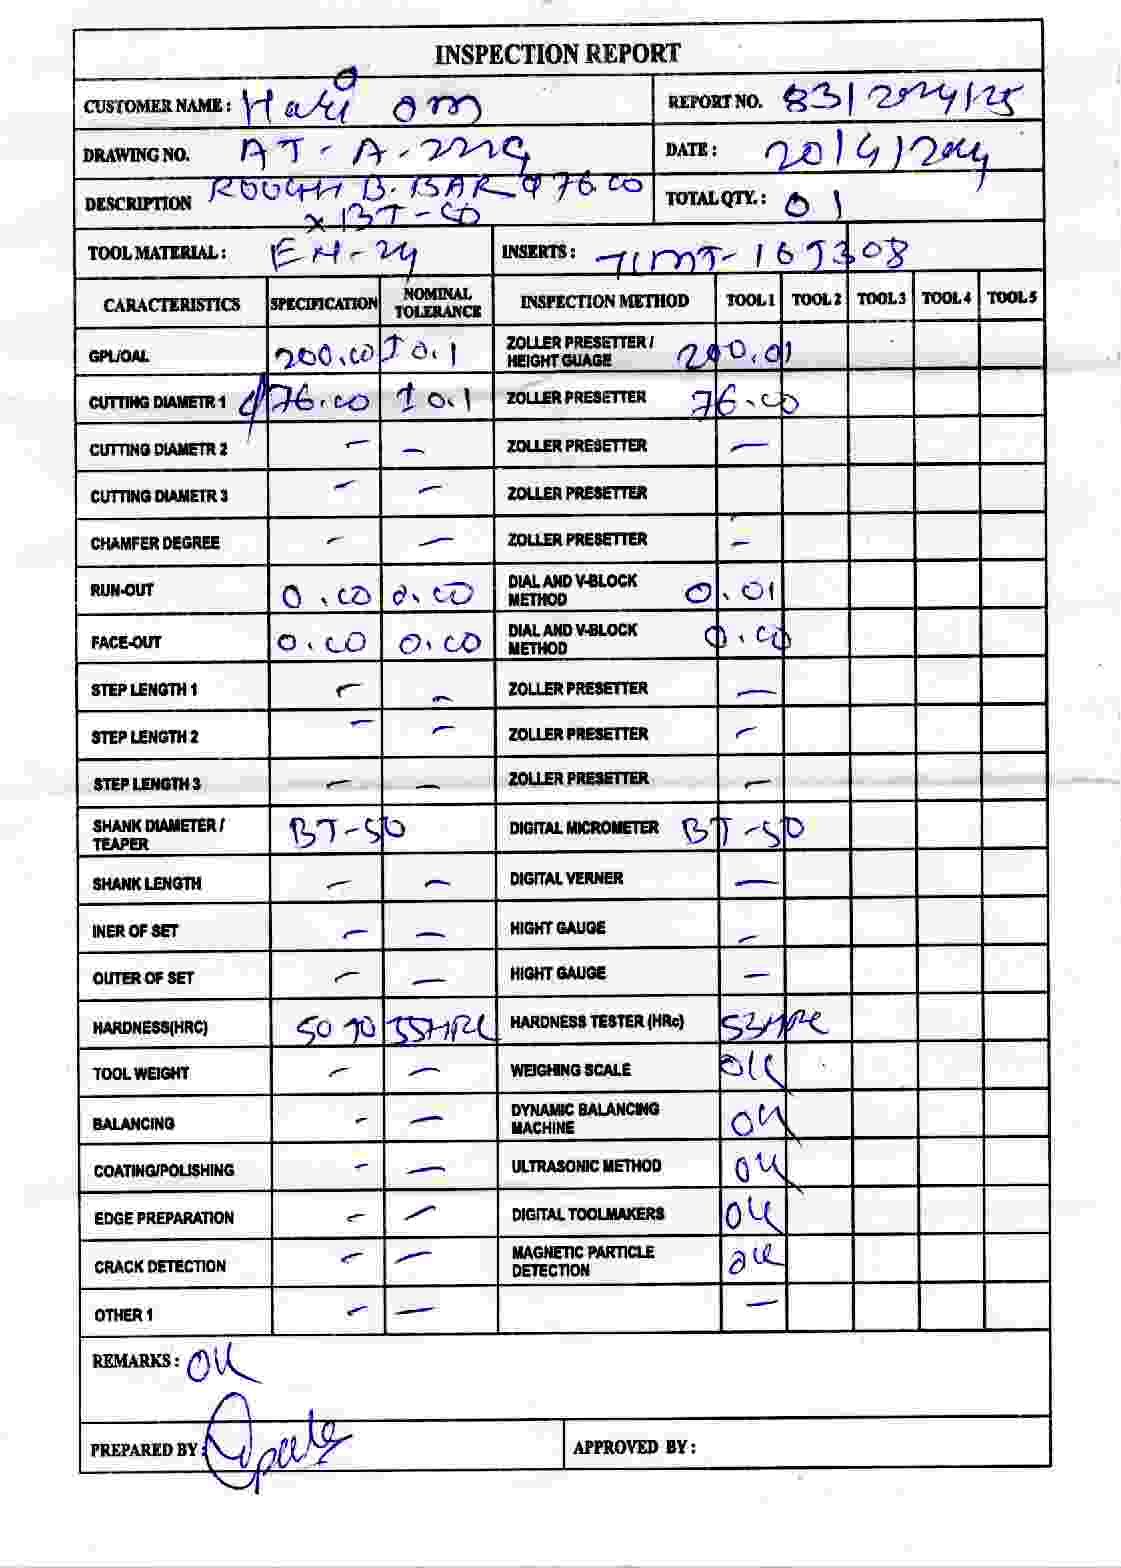 INSPECTION REPORT
CUSTOMER NAME : Hari om
REPORT NO. 83/2024/25
DRAWING NO. AT-A-2229
DATE : 20/4/2024
DESCRIPTION ROUGH B. BAR φ 76.00
x BT-50
TOTAL QTY. : 01
TOOL MATERIAL : EN-24
INSERTS : TCMT-16T308
CARACTERISTICS SPECIFICATION NOMINAL TOLERANCE INSPECTION METHOD TOOL 1 TOOL 2 TOOL 3 TOOL 4 TOOL 5
GPL/OAL 200.00 ± 0.1 ZOLLER PRESETTER / HEIGHT GUAGE 200.01
CUTTING DIAMETR 1 φ76.00 ± 0.1 ZOLLER PRESETTER 76.00
CUTTING DIAMETR 2 – – ZOLLER PRESETTER –
CUTTING DIAMETR 3 – – ZOLLER PRESETTER
CHAMFER DEGREE – – ZOLLER PRESETTER –
RUN-OUT 0.00 0.00 DIAL AND V-BLOCK METHOD 0.01
FACE-OUT 0.00 0.00 DIAL AND V-BLOCK METHOD 0.00
STEP LENGTH 1 – – ZOLLER PRESETTER –
STEP LENGTH 2 – – ZOLLER PRESETTER –
STEP LENGTH 3 – – ZOLLER PRESETTER –
SHANK DIAMETER / TEAPER BT-50 DIGITAL MICROMETER BT-50
SHANK LENGTH – – DIGITAL VERNER –
INER OF SET – – HIGHT GAUGE –
OUTER OF SET – – HIGHT GAUGE –
HARDNESS(HRC) 50 TO 55HRC HARDNESS TESTER (HRc) 53HRC
TOOL WEIGHT – – WEIGHING SCALE OK
BALANCING – – DYNAMIC BALANCING MACHINE OK
COATING/POLISHING – – ULTRASONIC METHOD OK
EDGE PREPARATION – – DIGITAL TOOLMAKERS OK
CRACK DETECTION – – MAGNETIC PARTICLE DETECTION OK
OTHER 1 – – –
REMARKS : OK
PREPARED BY :
APPROVED BY :